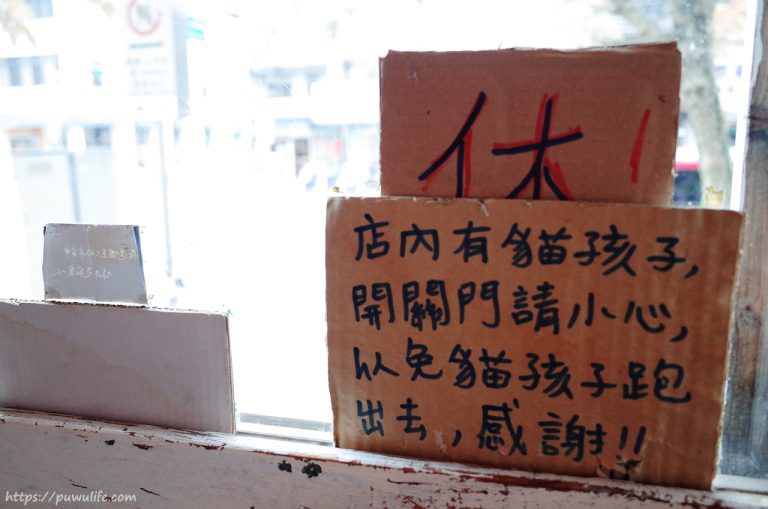 休!
店內有貓孩子,
開關門請小心,
以免貓孩子跑
出去,感謝!!
https://puwulife.com